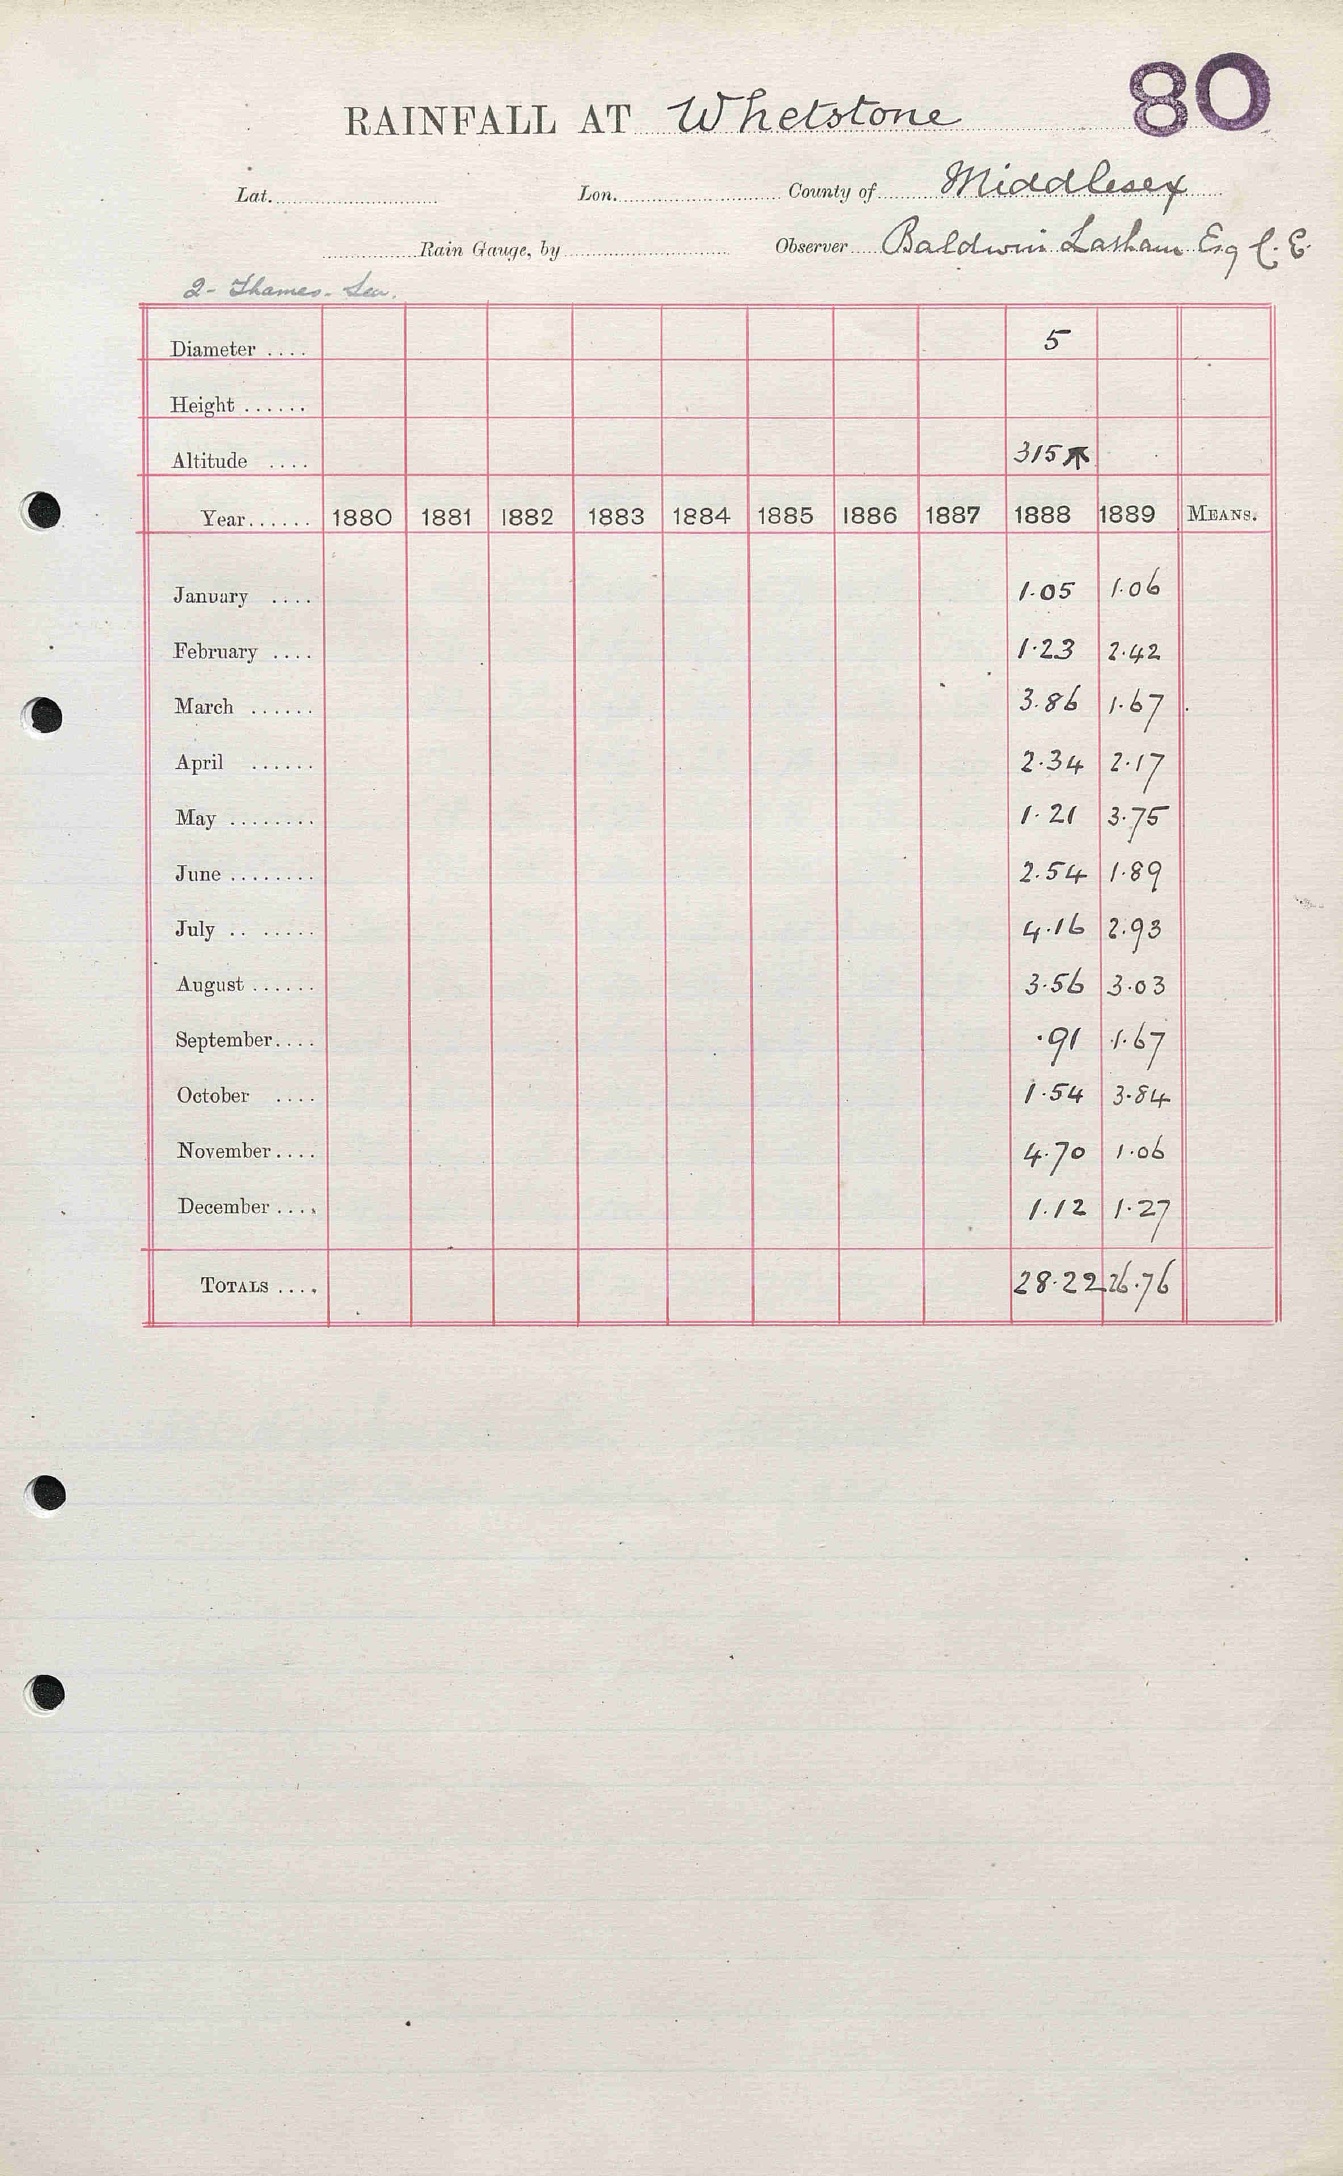 80
RAINFALL AT Whetstone
Lat. Lon. County of Middlesex
Rain Gauge, by Observer Baldwin Latham Esq C. E.
2 - Thames - Lea.
Diameter .... 5
Height ......
Altitude .... 315
Year ...... 1880 1881 1882 1883 1884 1885 1886 1887 1888 1889 MEANS.
January .... 1.05 1.06
February .... 1.23 2.42
March ...... 3.86 1.67
April ...... 2.34 2.17
May ........ 1.21 3.75
June ........ 2.54 1.89
July .. ..... 4.16 2.93
August ...... 3.56 3.03
September.... .91 1.67
October .... 1.54 3.84
November.... 4.70 1.06
December .... 1.12 1.27
TOTALS .... 28.22 26.76